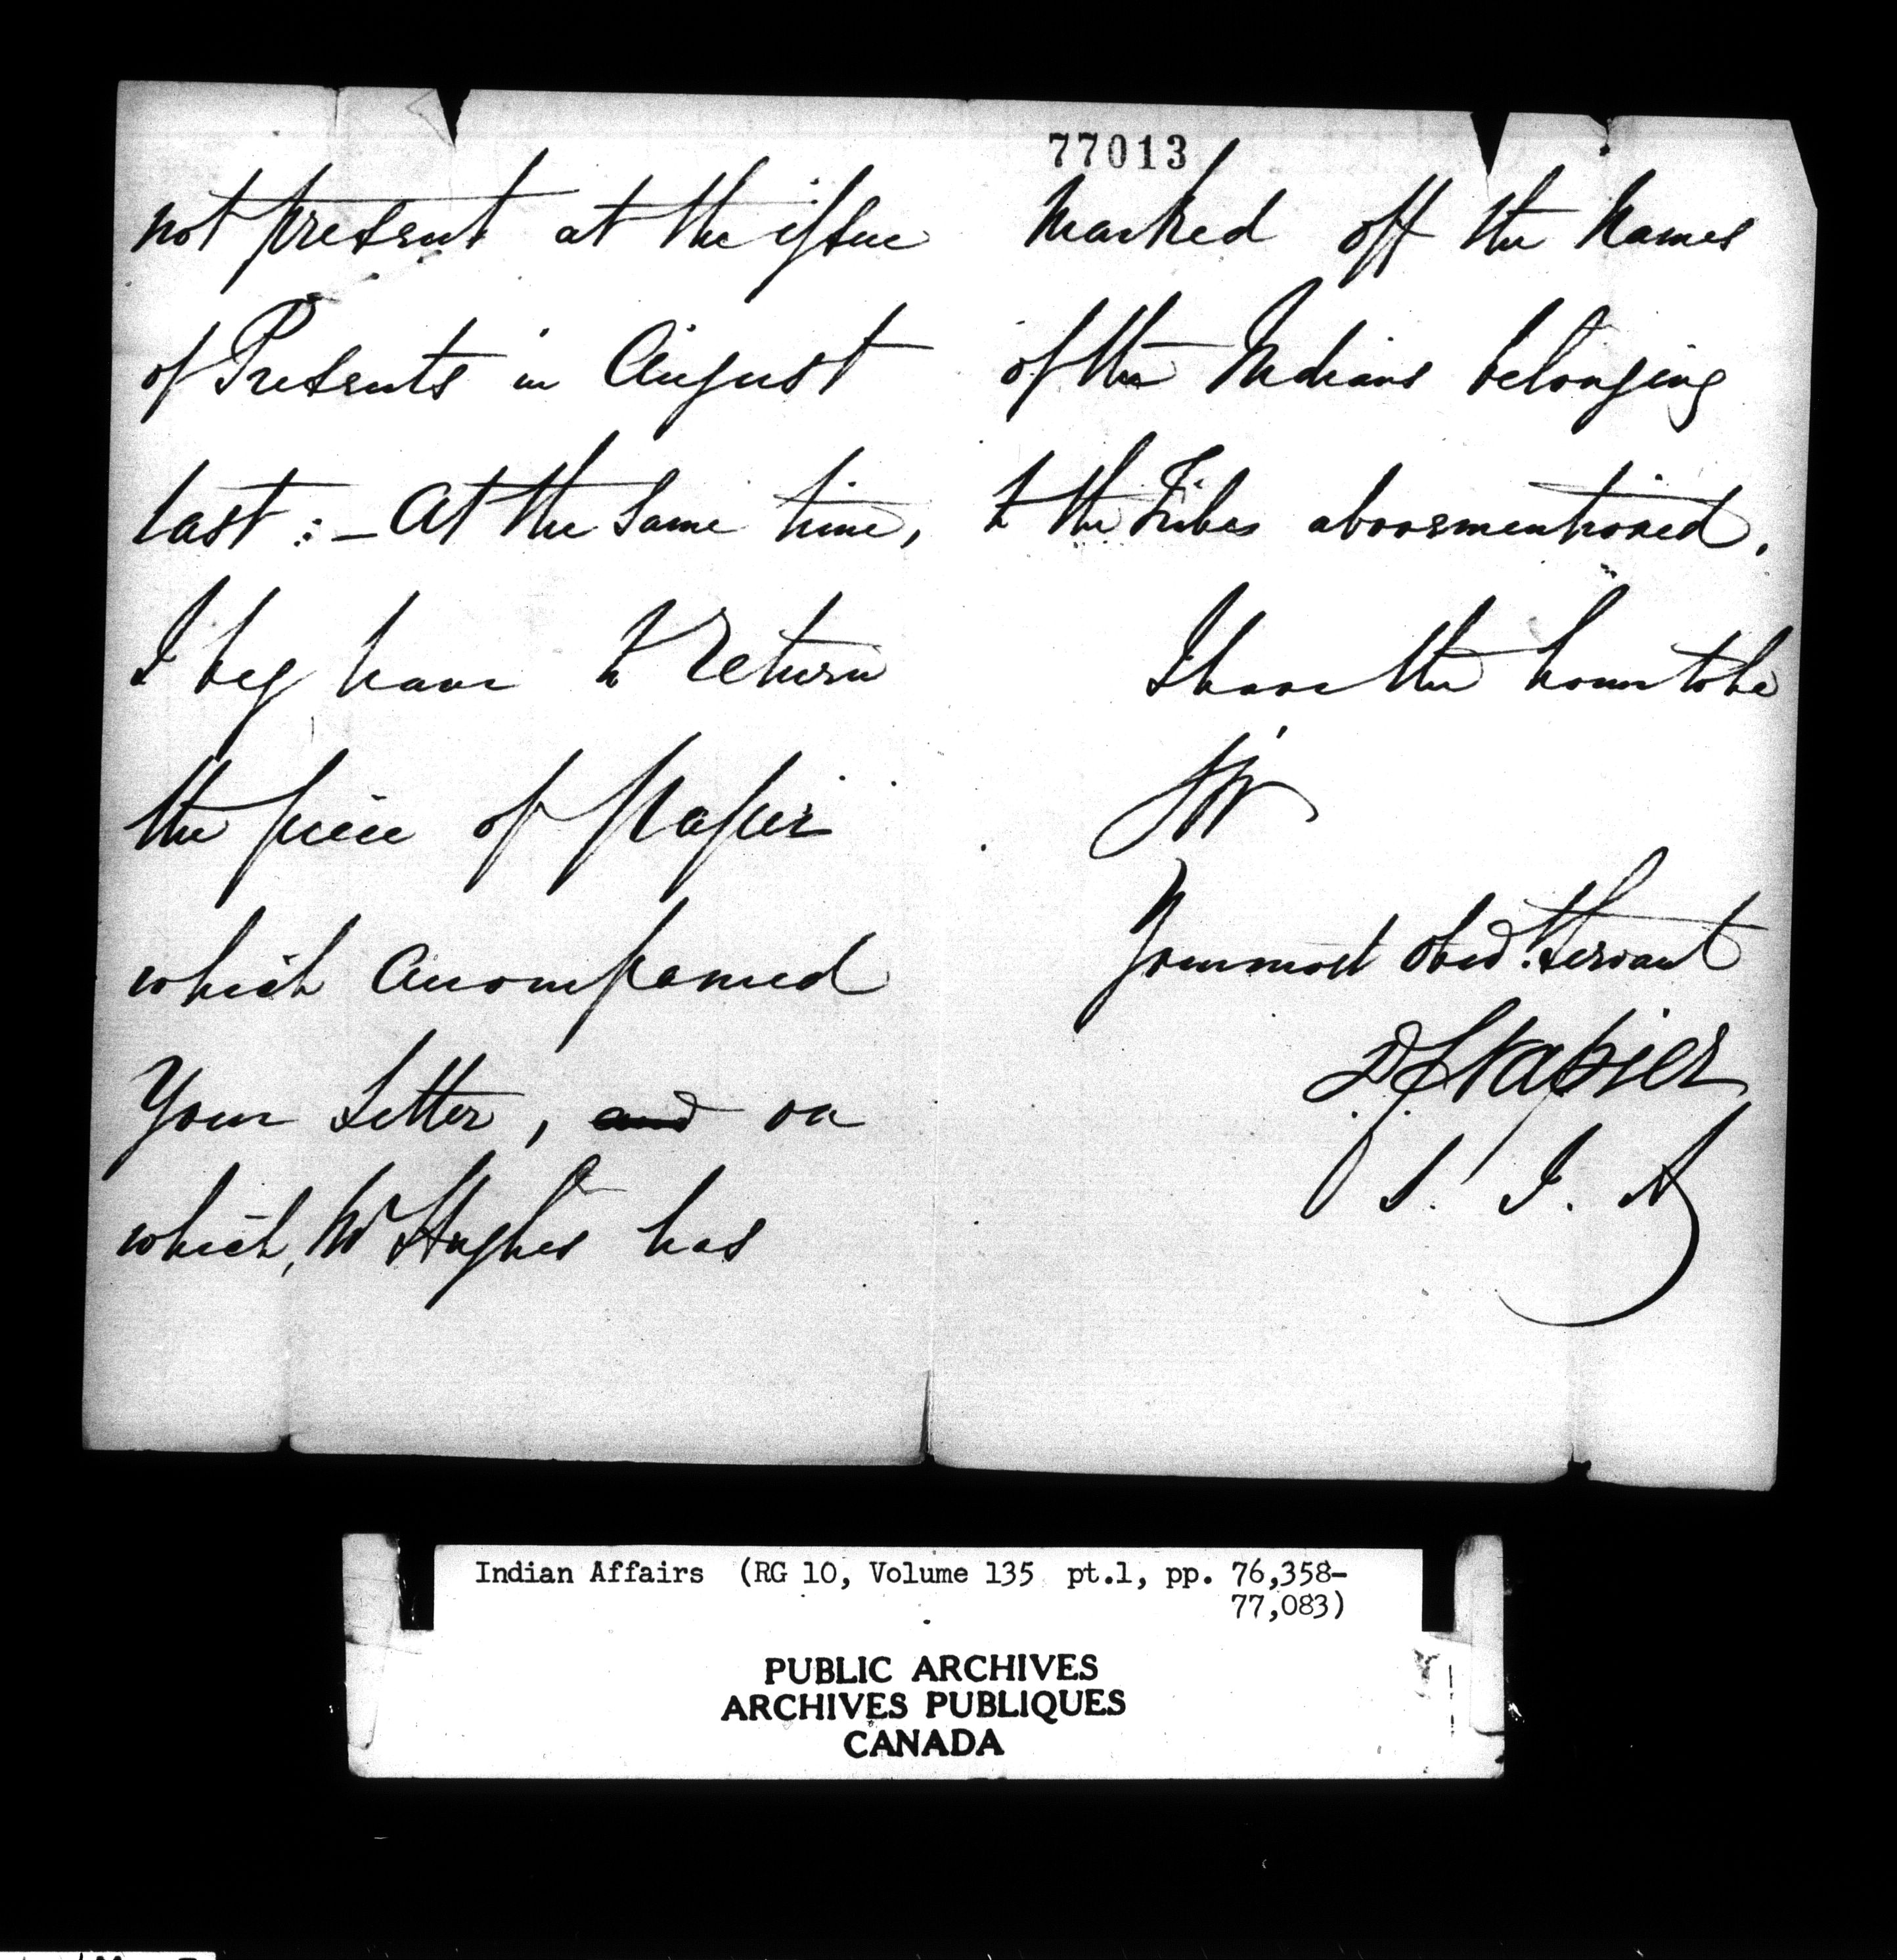 77013
not present at the issue
of Presents in August
last : – At the same time,
I beg leave to return
the piece of paper
which accompanied
Your Letter, and on
which, Mr Hughes has
marked off the Names
of the Indians belonging
to the Tribes abovementioned.
I have the honor to be
Sir
Your most obedt. Servant
D. C. Napier
S. I. A
Indian Affairs (RG 10, Volume 135 pt.1, pp. 76,358-
77,083)
PUBLIC ARCHIVES
ARCHIVES PUBLIQUES
CANADA